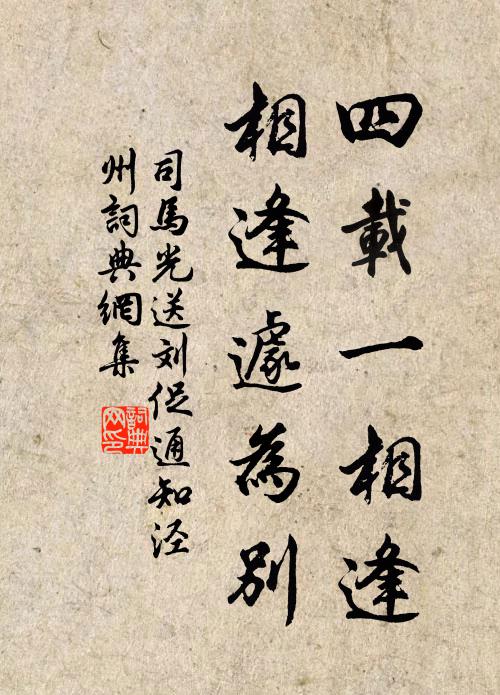 四載一相逢
相逢遽為別
司馬光送刘促通知泾
州詞典網集
詞典
网印